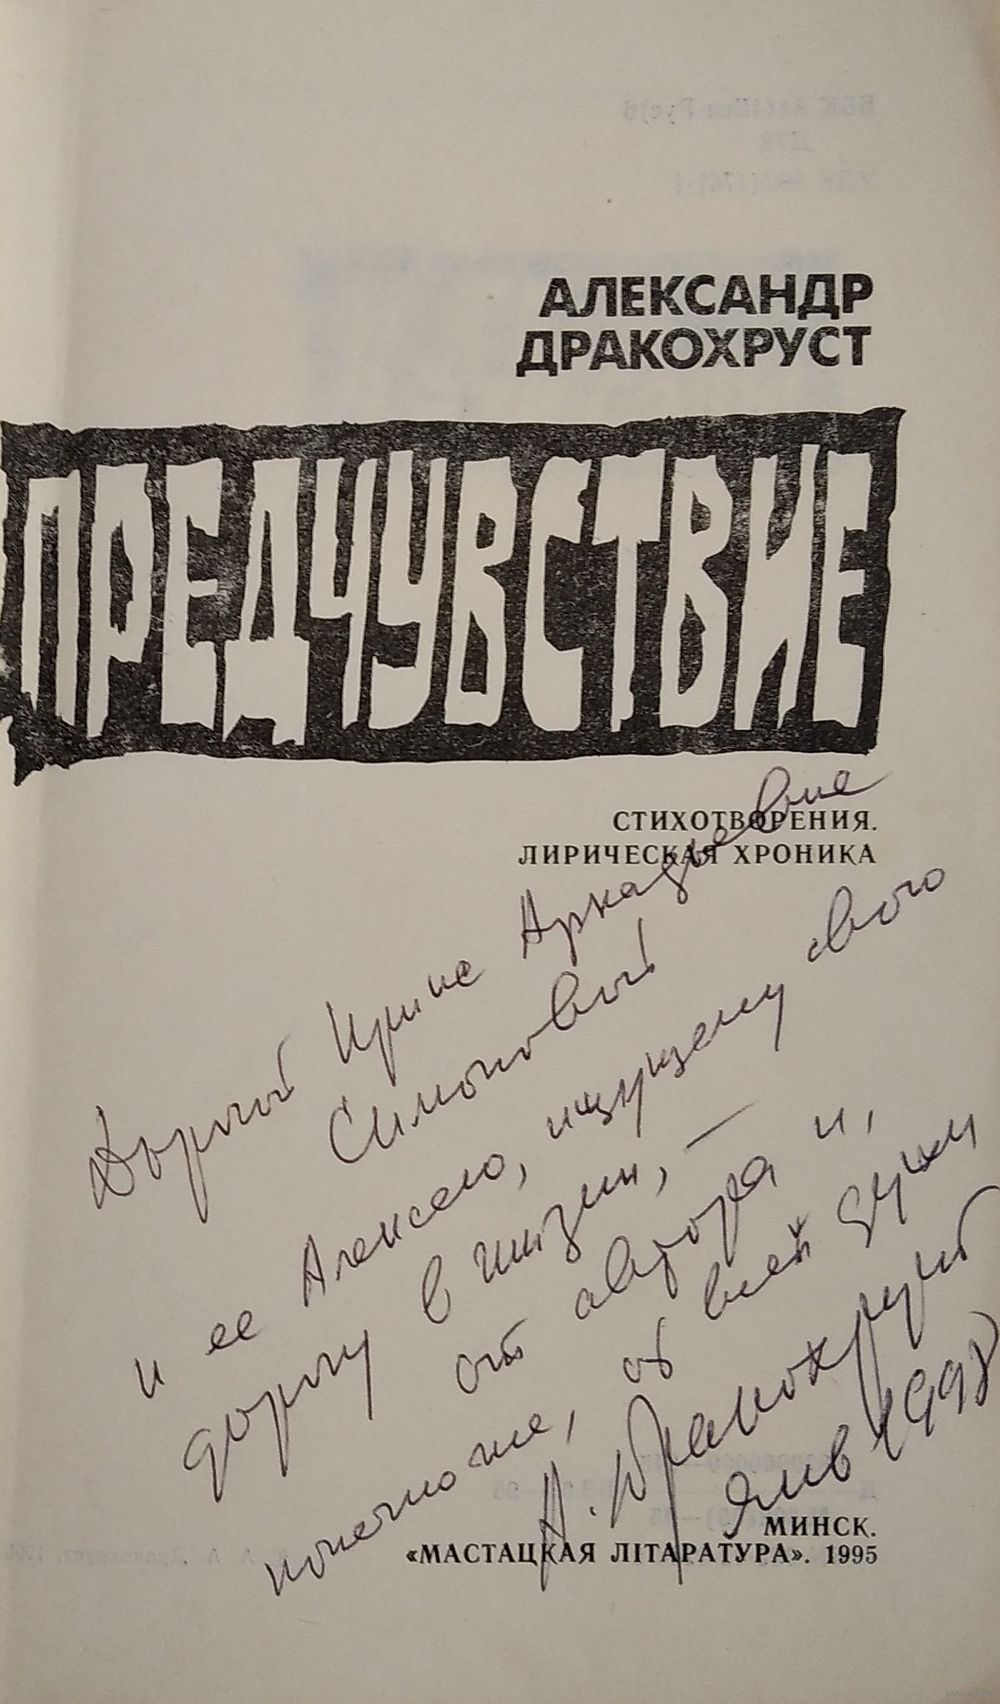 АЛЕКСАНДР
ДРАКОХРУСТ
ПРЕДЧУВСТВИЕ
СТИХОТВОРЕНИЯ.
ЛИРИЧЕСКАЯ ХРОНИКА
Дорогой Ирине Аркадьевне
Симоновой
и ее Алексею, ищущему свою
дорогу в жизни, —
от автора и,
конечно же, от всей души
А. Дракохруст
Янв 1998
МИНСК.
«МАСТАЦКАЯ ЛІТАРАТУРА». 1995